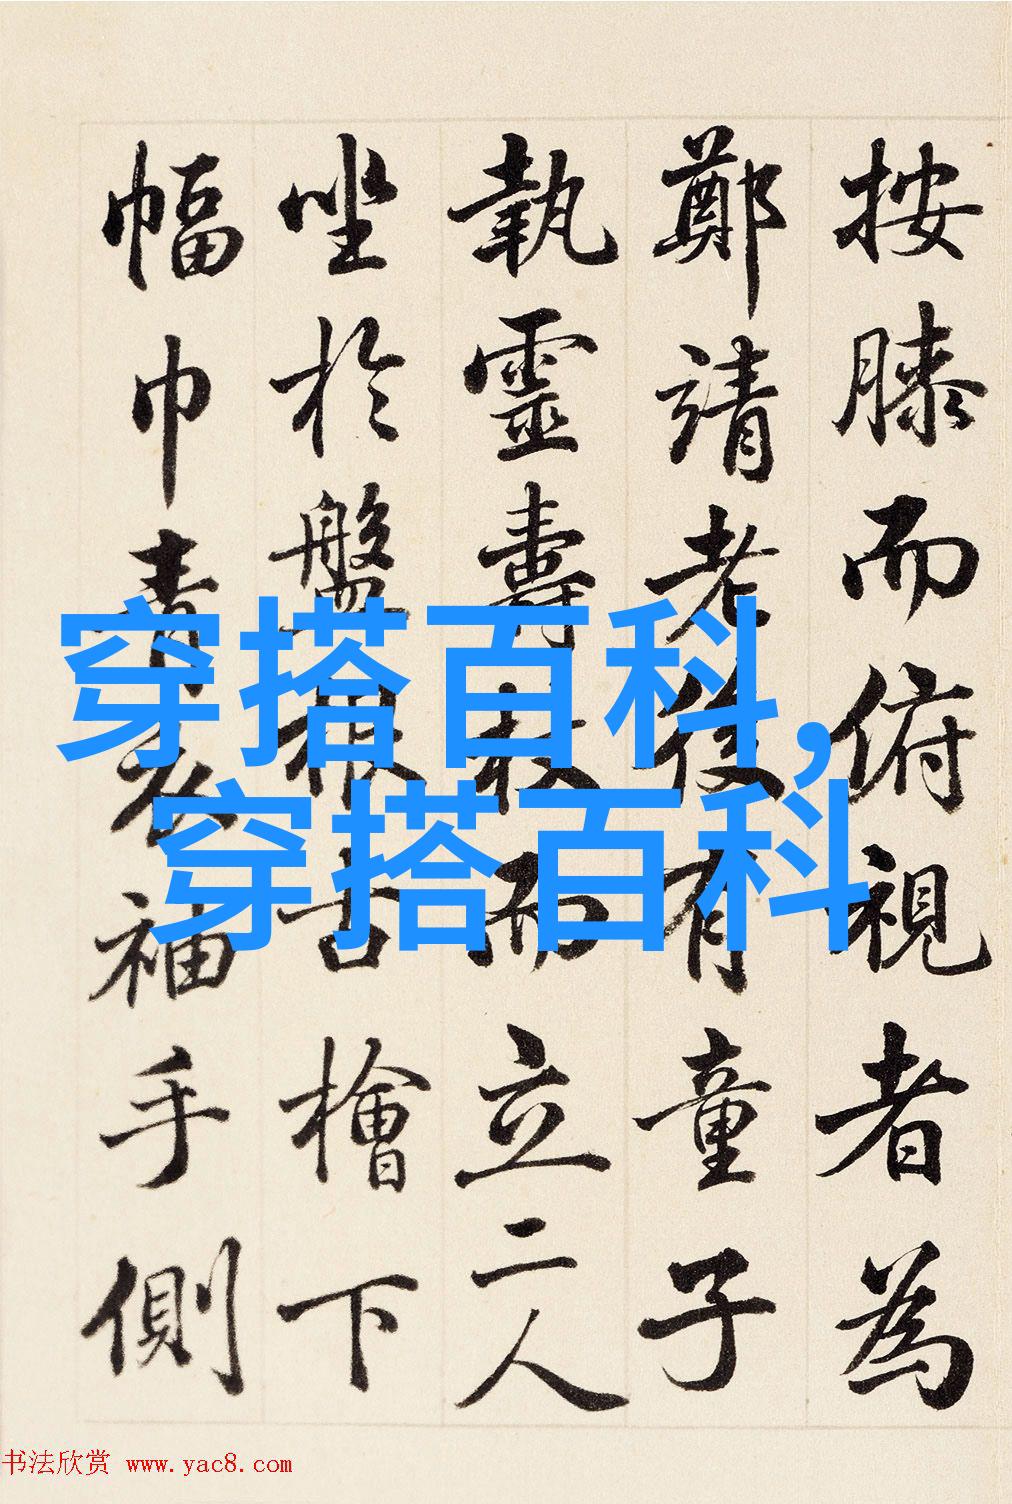 按膝而俯視者為
鄭靖老後有童子
執靈壽杖而立二人
坐於盤根古檜下
幅巾青衣袖手側
穿搭百科，
穿搭百科
书法欣赏 www.yac8.com